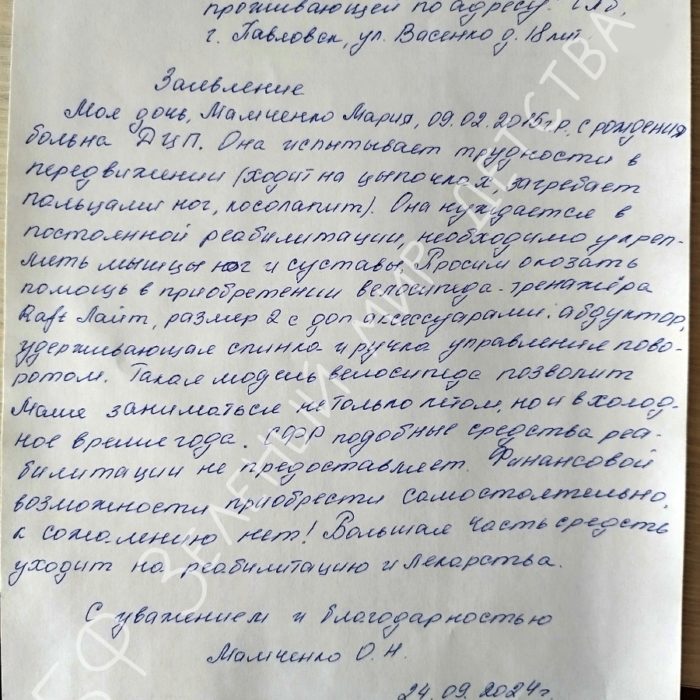 проживающей по адресу: СПб,
г. Павловск, ул. Васенко д. 18 лит
Заявление
Моя дочь, Мамченко Мария, 09.02.2015г.р., с рождения
больна ДЦП. Она испытывает трудности в
передвижении (ходит на цыпочках, загребает
пальцами ног, косолапит). Она нуждается в
постоянной реабилитации, необходимо укреп-
лять мышцы ног и суставы. Просим оказать
помощь в приобретении велосипеда-тренажёра
Raft Лайт, размер 2 с доп. аксессуарами: абдуктор,
удерживающая спинка и ручка управления пово-
ротом. Такая модель велосипеда позволит
Маше заниматься не только летом, но и в холод-
ное время года. СФР подобные средства реа-
билитации не предоставляет. Финансовой
возможности приобрести самостоятельно,
к сожалению нет! Большая часть средств
уходит на реабилитацию и лекарства.
С уважением и благодарностью
Мамченко О.Н.
24.09.2024г.
БФ ЗЕЛЕНЫЙ МИР ДЕТСТВА